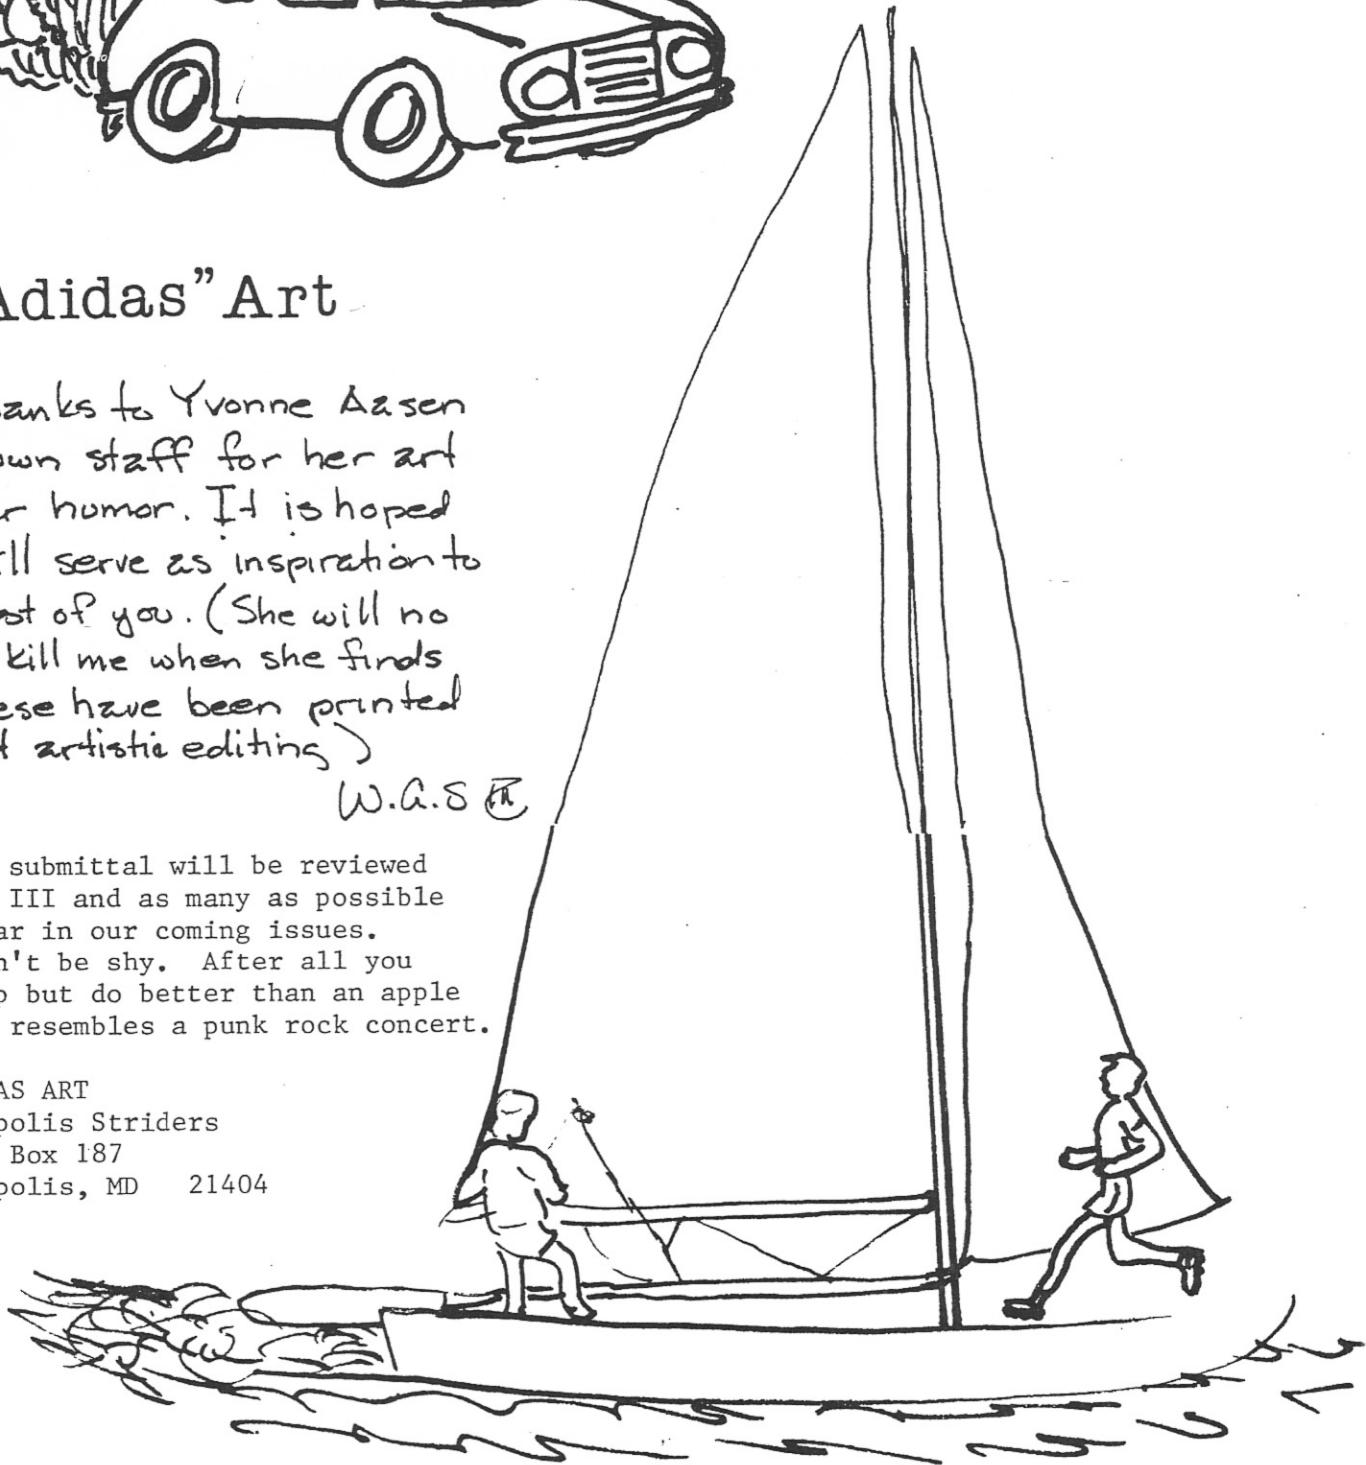 Adidas" Art
anks to Yvonne Aasen
own staff for her art
r humor. It is hoped
'll serve as inspiration to
st of you. (She will no
kill me when she finds
ese have been printed
t artistic editing)
W.A.S III
submittal will be reviewed
III and as many as possible
ar in our coming issues.
n't be shy. After all you
p but do better than an apple
resembles a punk rock concert.
AS ART
polis Striders
Box 187
polis, MD 21404